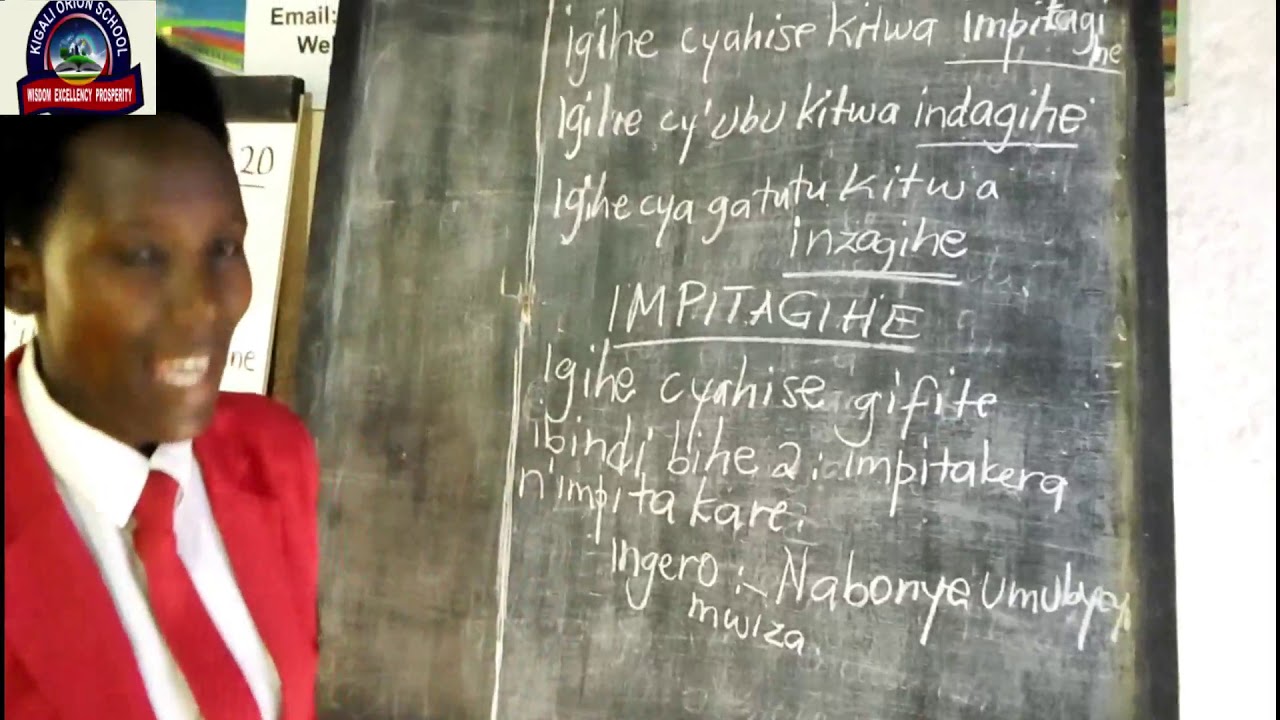 KIGALI ORION SCHOOL
WISDOM EXCELLENCY PROSPERITY
Email:
20
ne
igihe cyahise kitwa impitagi
he
Igihe cy'ubu kitwa indagihe
Igihe cya gatutu kitwa
inzagihe
IMPITAGIHE
Igihe cyahise gifite
ibindi bihe 2: impitakera
n'impita kare.
Ingero :- Nabonye umubyeyi
mwiza.